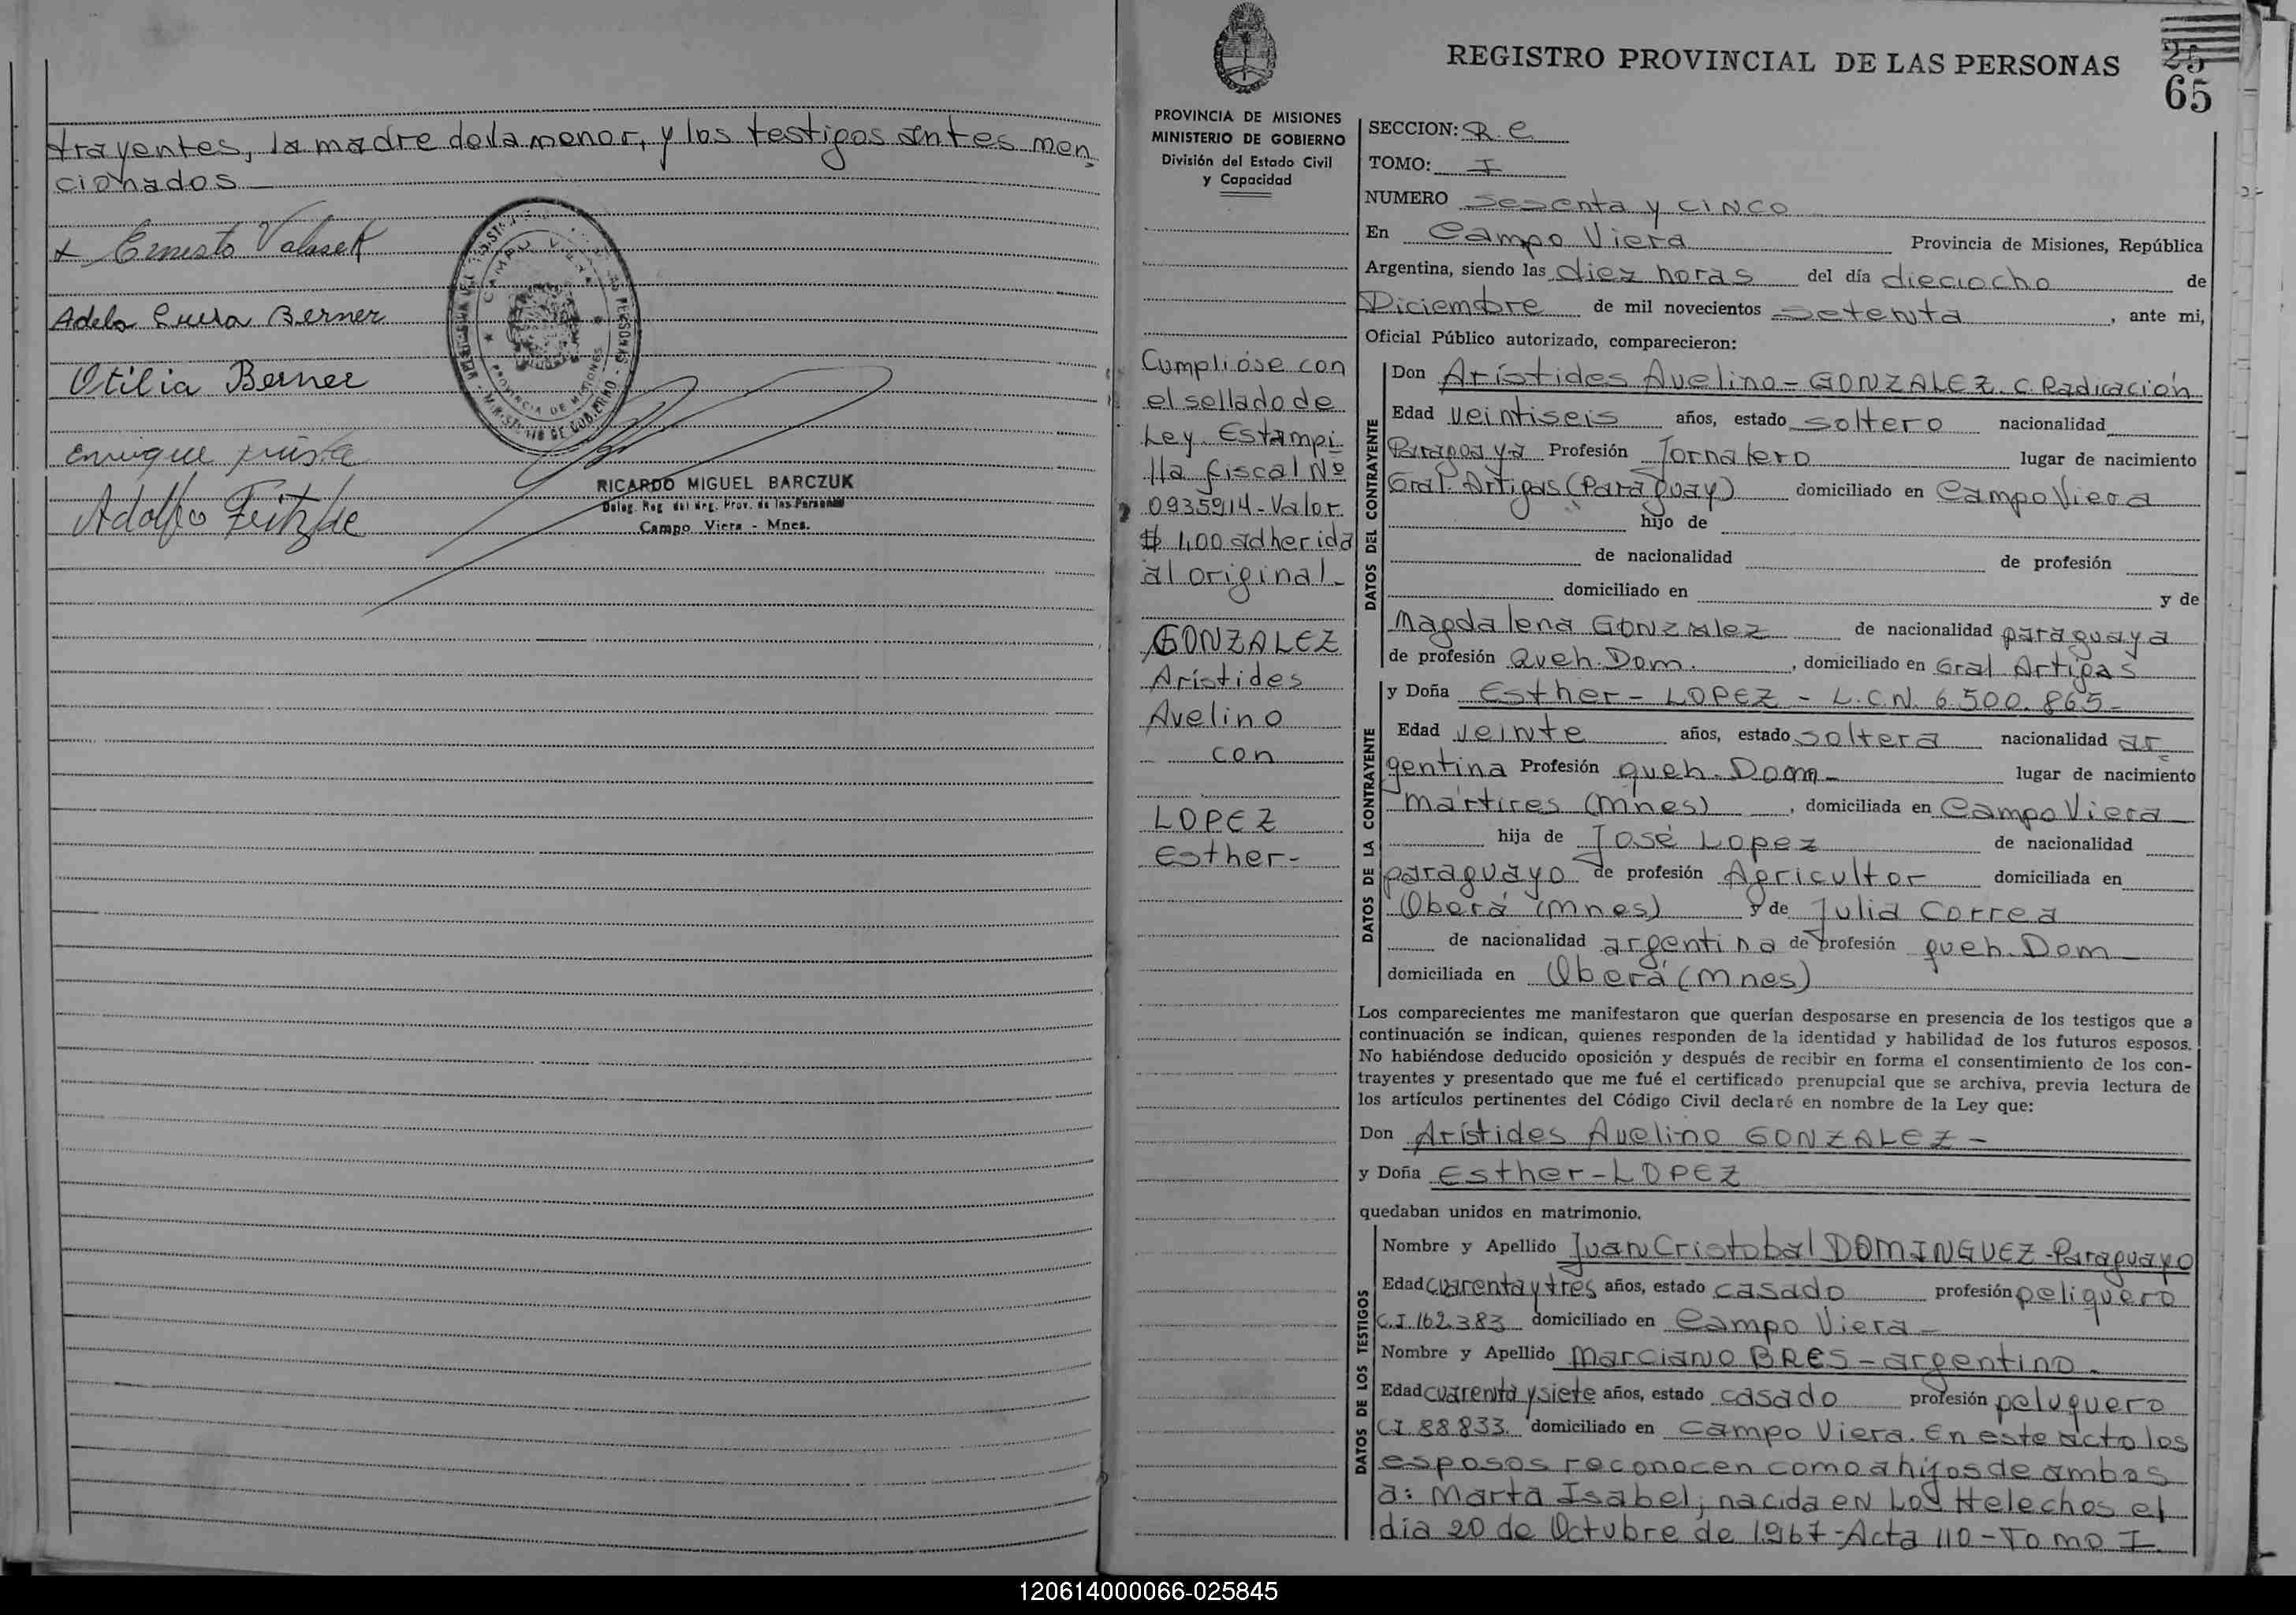 trayentes, la madre de la menor, y los testigos antes men
cionados
Ernesto Valasek
Adela Luisa Berner
Otilia Berner
Enrique
Adolfo Fritzke
CAMPO VIERA
PROVINCIA DE MISIONES
RICARDO MIGUEL BARCZUK
Deleg. Reg. del Reg. Prov. de las Personas
Campo Viera - Mnes.
PROVINCIA DE MISIONES
MINISTERIO DE GOBIERNO
División del Estado Civil
y Capacidad
Cumplióse con
el sellado de
Ley. Estampi
lla fiscal Nº
0935914-Valor
$ 1,00 adherida
al original-
GONZALEZ
Arístides
Avelino
con
LOPEZ
Esther-
REGISTRO PROVINCIAL DE LAS PERSONAS
25
65
SECCION: R. C
TOMO: I
NUMERO Sesenta y cinco
En Campo Viera Provincia de Misiones, República
Argentina, siendo las diez horas del día dieciocho de
Diciembre de mil novecientos setenta, ante mi,
Oficial Público autorizado, comparecieron:
DATOS DEL CONTRAYENTE
Don Arístides Avelino - GONZALEZ. C. Radicación
Edad veintiseis años, estado soltero nacionalidad
Paragoaya Profesión Jornalero lugar de nacimiento
Gral. Artigas (Paraguay) domiciliado en Campo Viera
hijo de
de nacionalidad de profesión
domiciliado en y de
Magdalena Gonzalez de nacionalidad paraguaya
de profesión Queh. Dom. , domiciliado en Gral Artigas
DATOS DE LA CONTRAYENTE
y Doña Esther - LOPEZ - L.C.N. 6.500.865-
Edad veinte años, estado soltera nacionalidad ar
gentina Profesión queh. Dom- lugar de nacimiento
mártires (mnes) , domiciliada en Campo Viera
hija de José Lopez de nacionalidad
paraguayo de profesión Agricultor domiciliada en
Oberá (mnes) y de Julia Correa
de nacionalidad argentina de profesión queh. Dom
domiciliada en Oberá (mnes)
Los comparecientes me manifestaron que querían desposarse en presencia de los testigos que a
continuación se indican, quienes responden de la identidad y habilidad de los futuros esposos.
No habiéndose deducido oposición y después de recibir en forma el consentimiento de los con-
trayentes y presentado que me fué el certificado prenupcial que se archiva, previa lectura de
los artículos pertinentes del Código Civil declaré en nombre de la Ley que:
Don Arístides Avelino GONZALEZ -
y Doña Esther - LOPEZ
quedaban unidos en matrimonio.
DATOS DE LOS TESTIGOS
Nombre y Apellido Juan Cristobal DOMINGUEZ - Paraguayo
Edad cuarenta y tres años, estado casado profesión peliquero
C.I. 162.383 domiciliado en Campo Viera -
Nombre y Apellido Marciano BRES - argentino -
Edad cuarenta y siete años, estado casado profesión peluquero
C.I. 88.833. domiciliado en Campo Viera. En este acto los
esposos reconocen como a hijos de ambos
a: Marta Isabel, nacida en Los Helechos el
día 20 de Octubre de 1967 - Acta 110 - Tomo I.
120614000066-025845